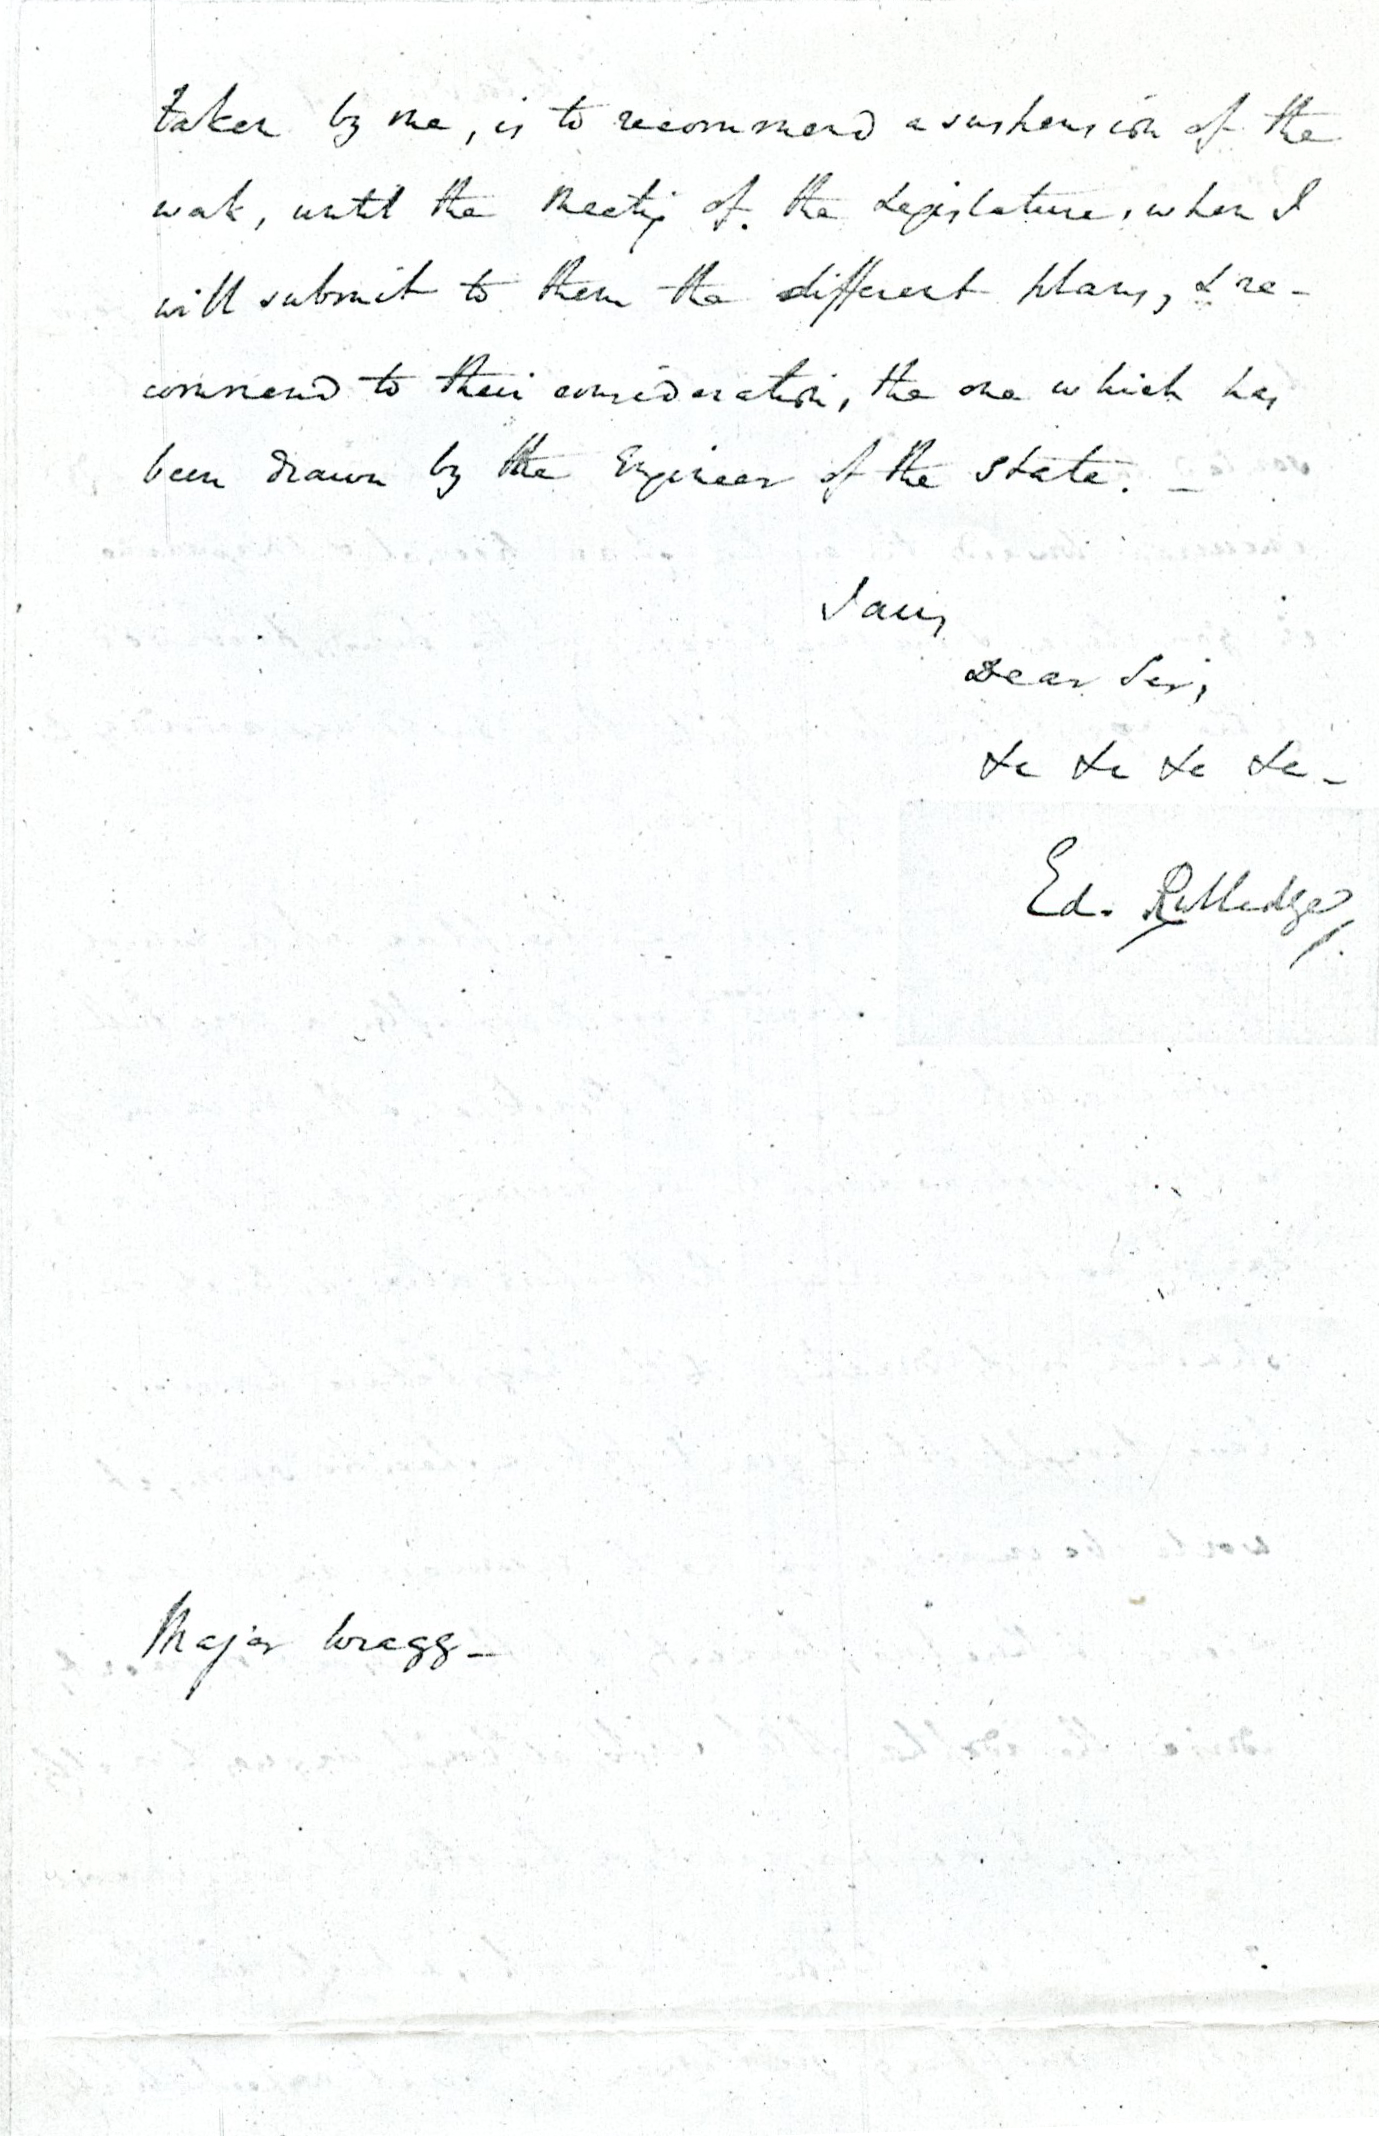 taken by me, is to recommend a suspension of the
work, until the Meeting of the Legislature, when I
will submit to them the different plans, & re-
commend to their consideration, the one which has
been drawn by the Engineer of the State. _
I am,
Dear Sir,
&c &c &c &c _
Ed. Rutledge.
Major Wragg _